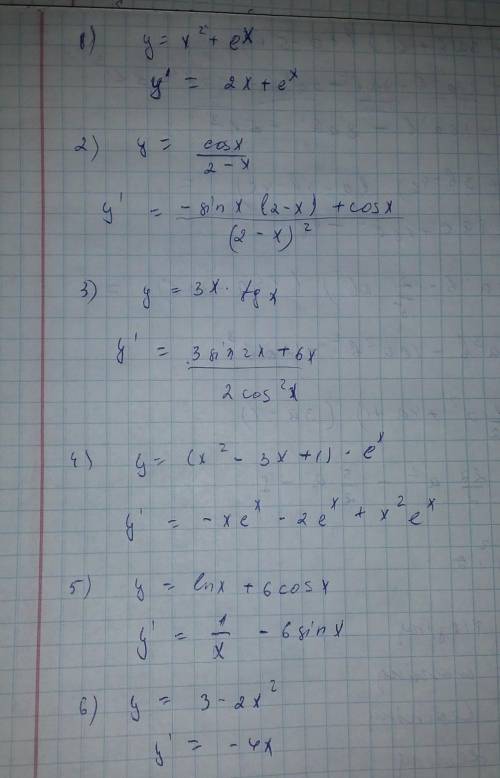 1) y = x² + eˣ
y' = 2x + eˣ
2) y = cosx / 2 - x
y' = -sinx (2-x) + cosx / (2-x)²
3) y = 3x · tgx
y' = 3sin2x + 6x / 2cos²x
4) y = (x² - 3x + 1) · eˣ
y' = -xeˣ - 2eˣ + x²eˣ
5) y = lnx + 6cosx
y' = 1/x - 6sinx
6) y = 3 - 2x²
y' = -4x